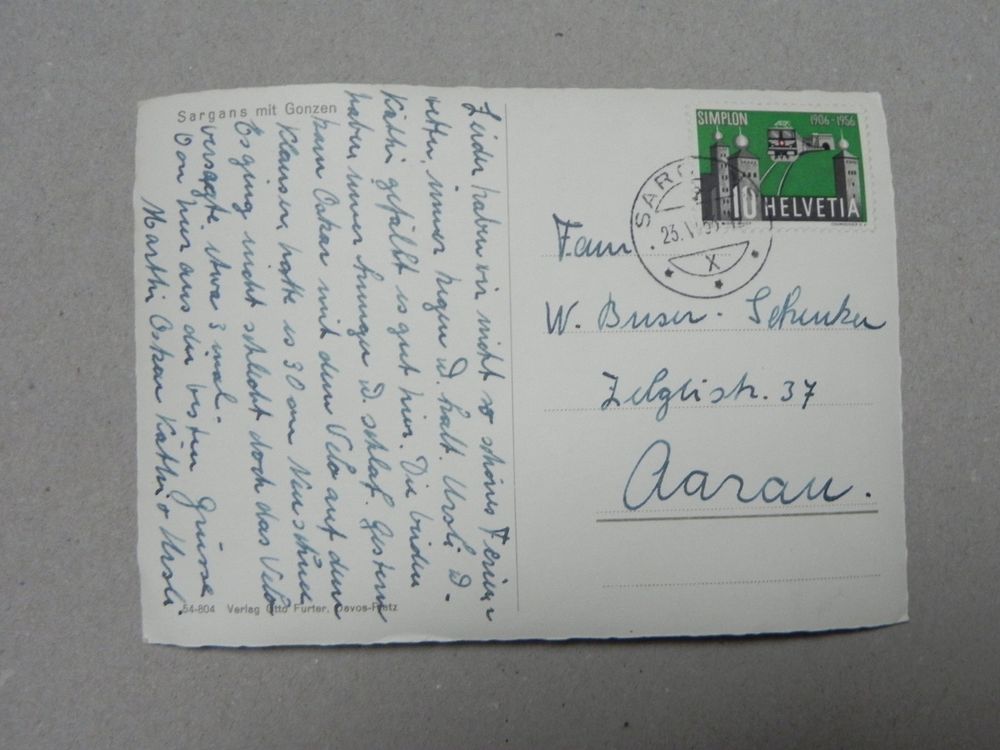 Sargans mit Gonzen
Leider haben wir nicht so schönes Ferien
wetter, immer Regen u. kalt. Ursli u.
Käthi gefällt es gut hier. Die beiden
haben immer hunger u. schlaf. Gestern
kam Oskar mit dem Velo auf dem
Klausen, hatte es 30 cm Neuschnee
Es ging nicht schlecht doch das Velo
versagte etwa 3 mal.
Von hier aus die besten Grüsse
Marthi Oskar Käthi u Ursli.
54-804 Verlag Otto Furter, Davos-Platz
SIMPLON 1906-1956
10 HELVETIA
SARG
23.
X
Fam
W. Buser-Schenker
Zelglistr. 37
Aarau.